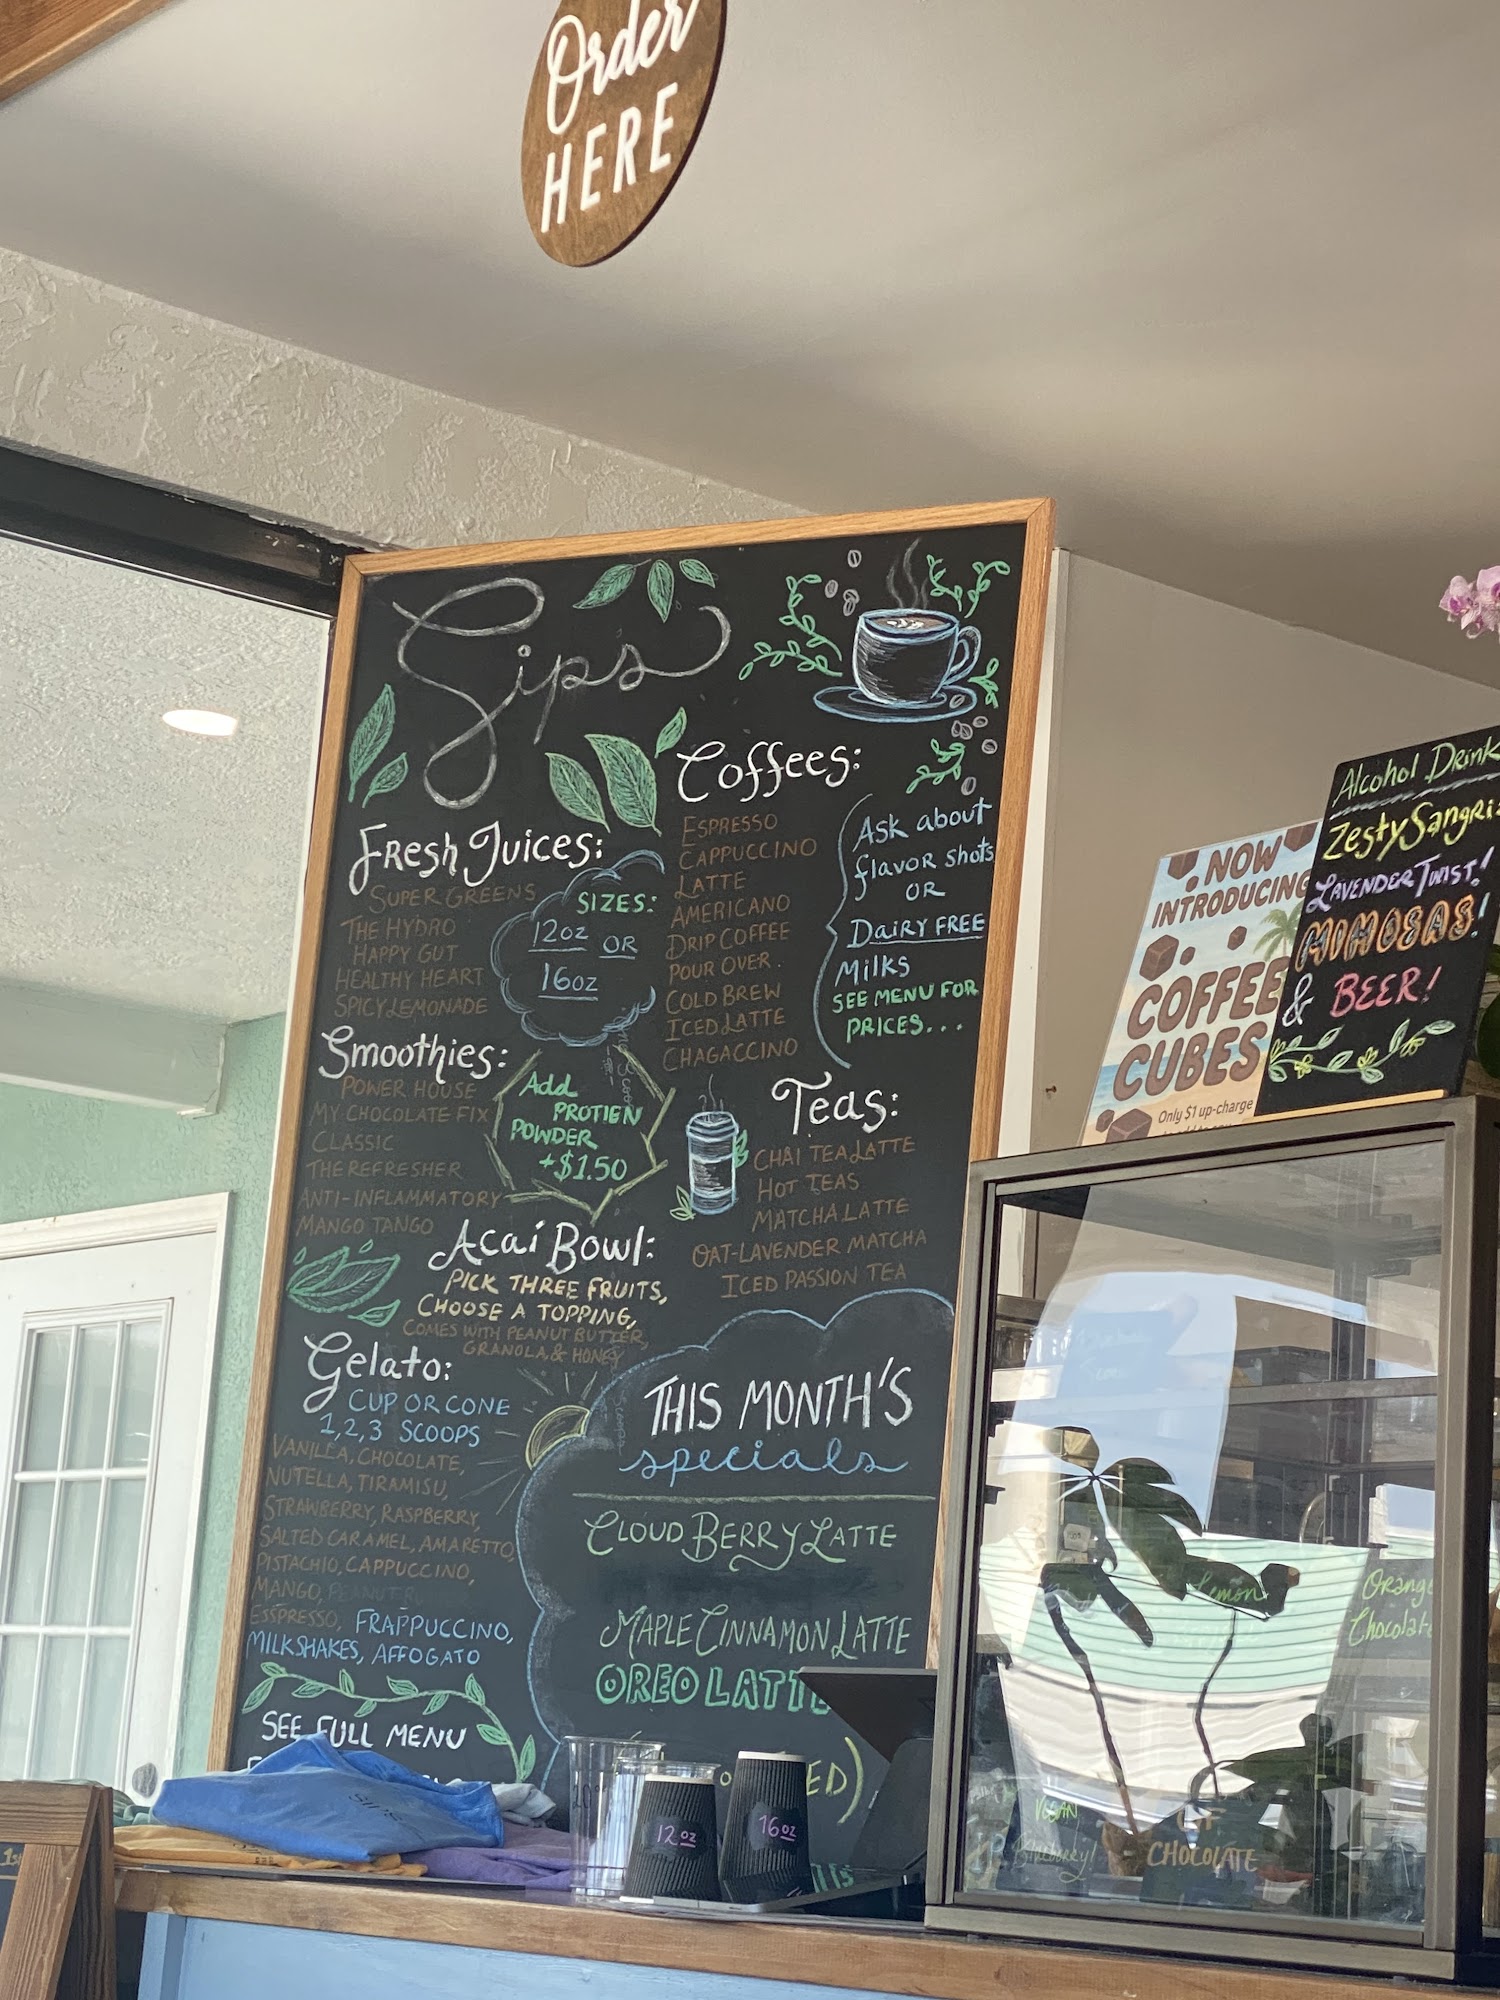 Order
HERE
Sips
Fresh Juices:
SUPER GREENS
THE HYDRO
HAPPY GUT
HEALTHY HEART
SPICY LEMONADE
SIZES:
12oz OR
16oz
Smoothies:
POWER HOUSE
MY CHOCOLATE FIX
CLASSIC
THE REFRESHER
ANTI-INFLAMMATORY
MANGO TANGO
Add
PROTIEN
POWDER
+$1.50
Acai Bowl:
PICK THREE FRUITS,
CHOOSE A TOPPING,
COMES WITH PEANUT BUTTER,
GRANOLA, & HONEY
Gelato:
CUP OR CONE
1,2,3 SCOOPS
VANILLA, CHOCOLATE,
NUTELLA, TIRAMISU,
STRAWBERRY, RASPBERRY,
SALTED CARAMEL, AMARETTO,
PISTACHIO, CAPPUCCINO,
MANGO,
ESSPRESSO, FRAPPUCCINO,
MILKSHAKES, AFFOGATO
SEE FULL MENU
Coffees:
ESPRESSO
CAPPUCCINO
LATTE
AMERICANO
DRIP COFFEE
POUR OVER.
COLD BREW
ICED LATTE
CHAGACCINO
Ask about
flavor shots
OR
DAIRY FREE
Milks
SEE MENU FOR
PRICES...
Teas:
CHAI TEA LATTE
HOT TEAS
MATCHA LATTE
OAT-LAVENDER MATCHA
ICED PASSION TEA
THIS MONTH'S
specials
CLOUD BERRY LATTE
MAPLE CINNAMON LATTE
OREO LATTE
12oz
16oz
NOW
INTRODUCING
COFFEE
CUBES
Only $1 up-charge
Alcohol Drink
Zesty Sangri
LAVENDER TWIST!
MIMOSAS!
& BEER!
Lemon
Orange
Chocolate
VEGAN
Blueberry!
GF
CHOCOLATE